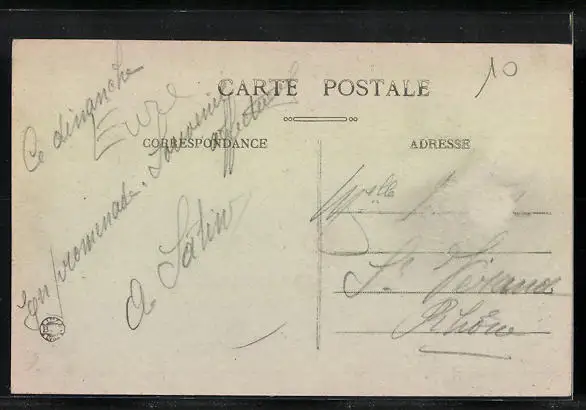 CARTE POSTALE
10
CORRESPONDANCE
ADRESSE
Ce dimanche
Eure
En promenade. Souvenir
affectueux
Melle
St Vérand
Rhône